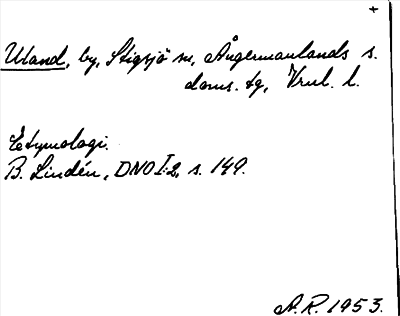 +
Uland, by, Stigsjö sn, Ångermanlands s.
doms. tg, Vrnl. l.
Etymologi.
B. Lindén, DNO I:2, s. 149.
A.R. 1953.